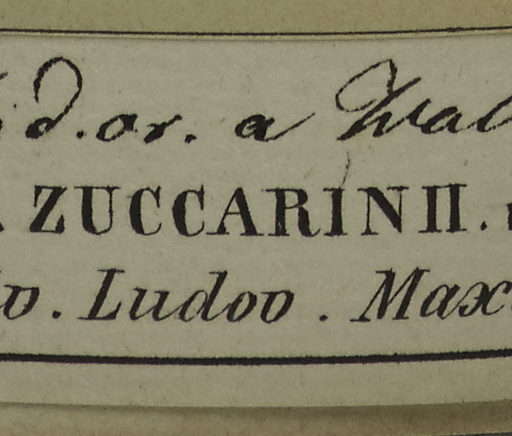 d. or. a Wal
. ZUCCARINII.
v. Ludov. Max